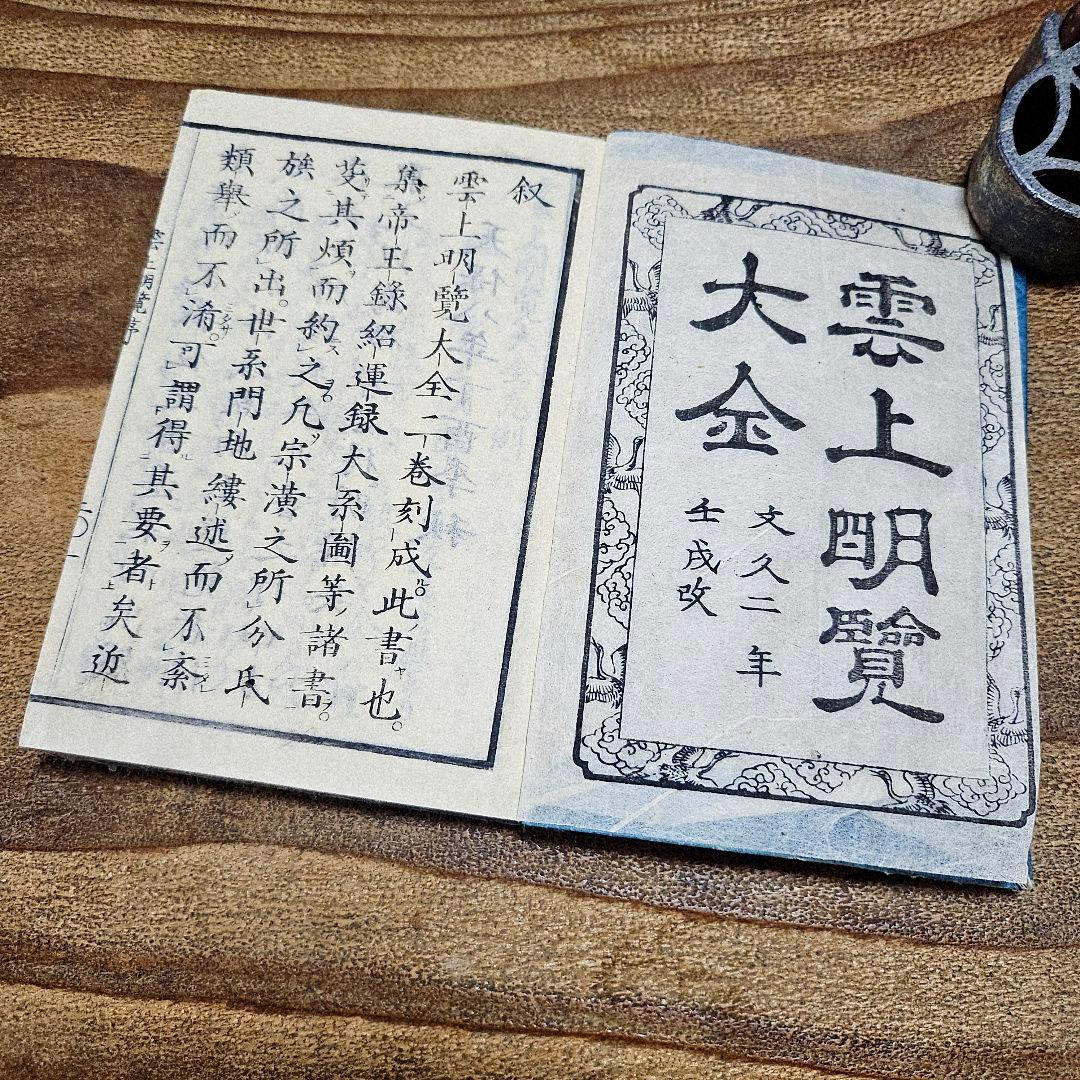 雲上明覽
大全
文久二年
壬戌改
叙
雲上明覽大全二卷刻成此書也。
集帝王錄紹運録大系圖等諸書。
芟其煩而約之。凡宗潢之所分氏
族之所出。世系門地縷述而不紊
類舉而不淆。可謂得其要者矣近
雲上明覽序